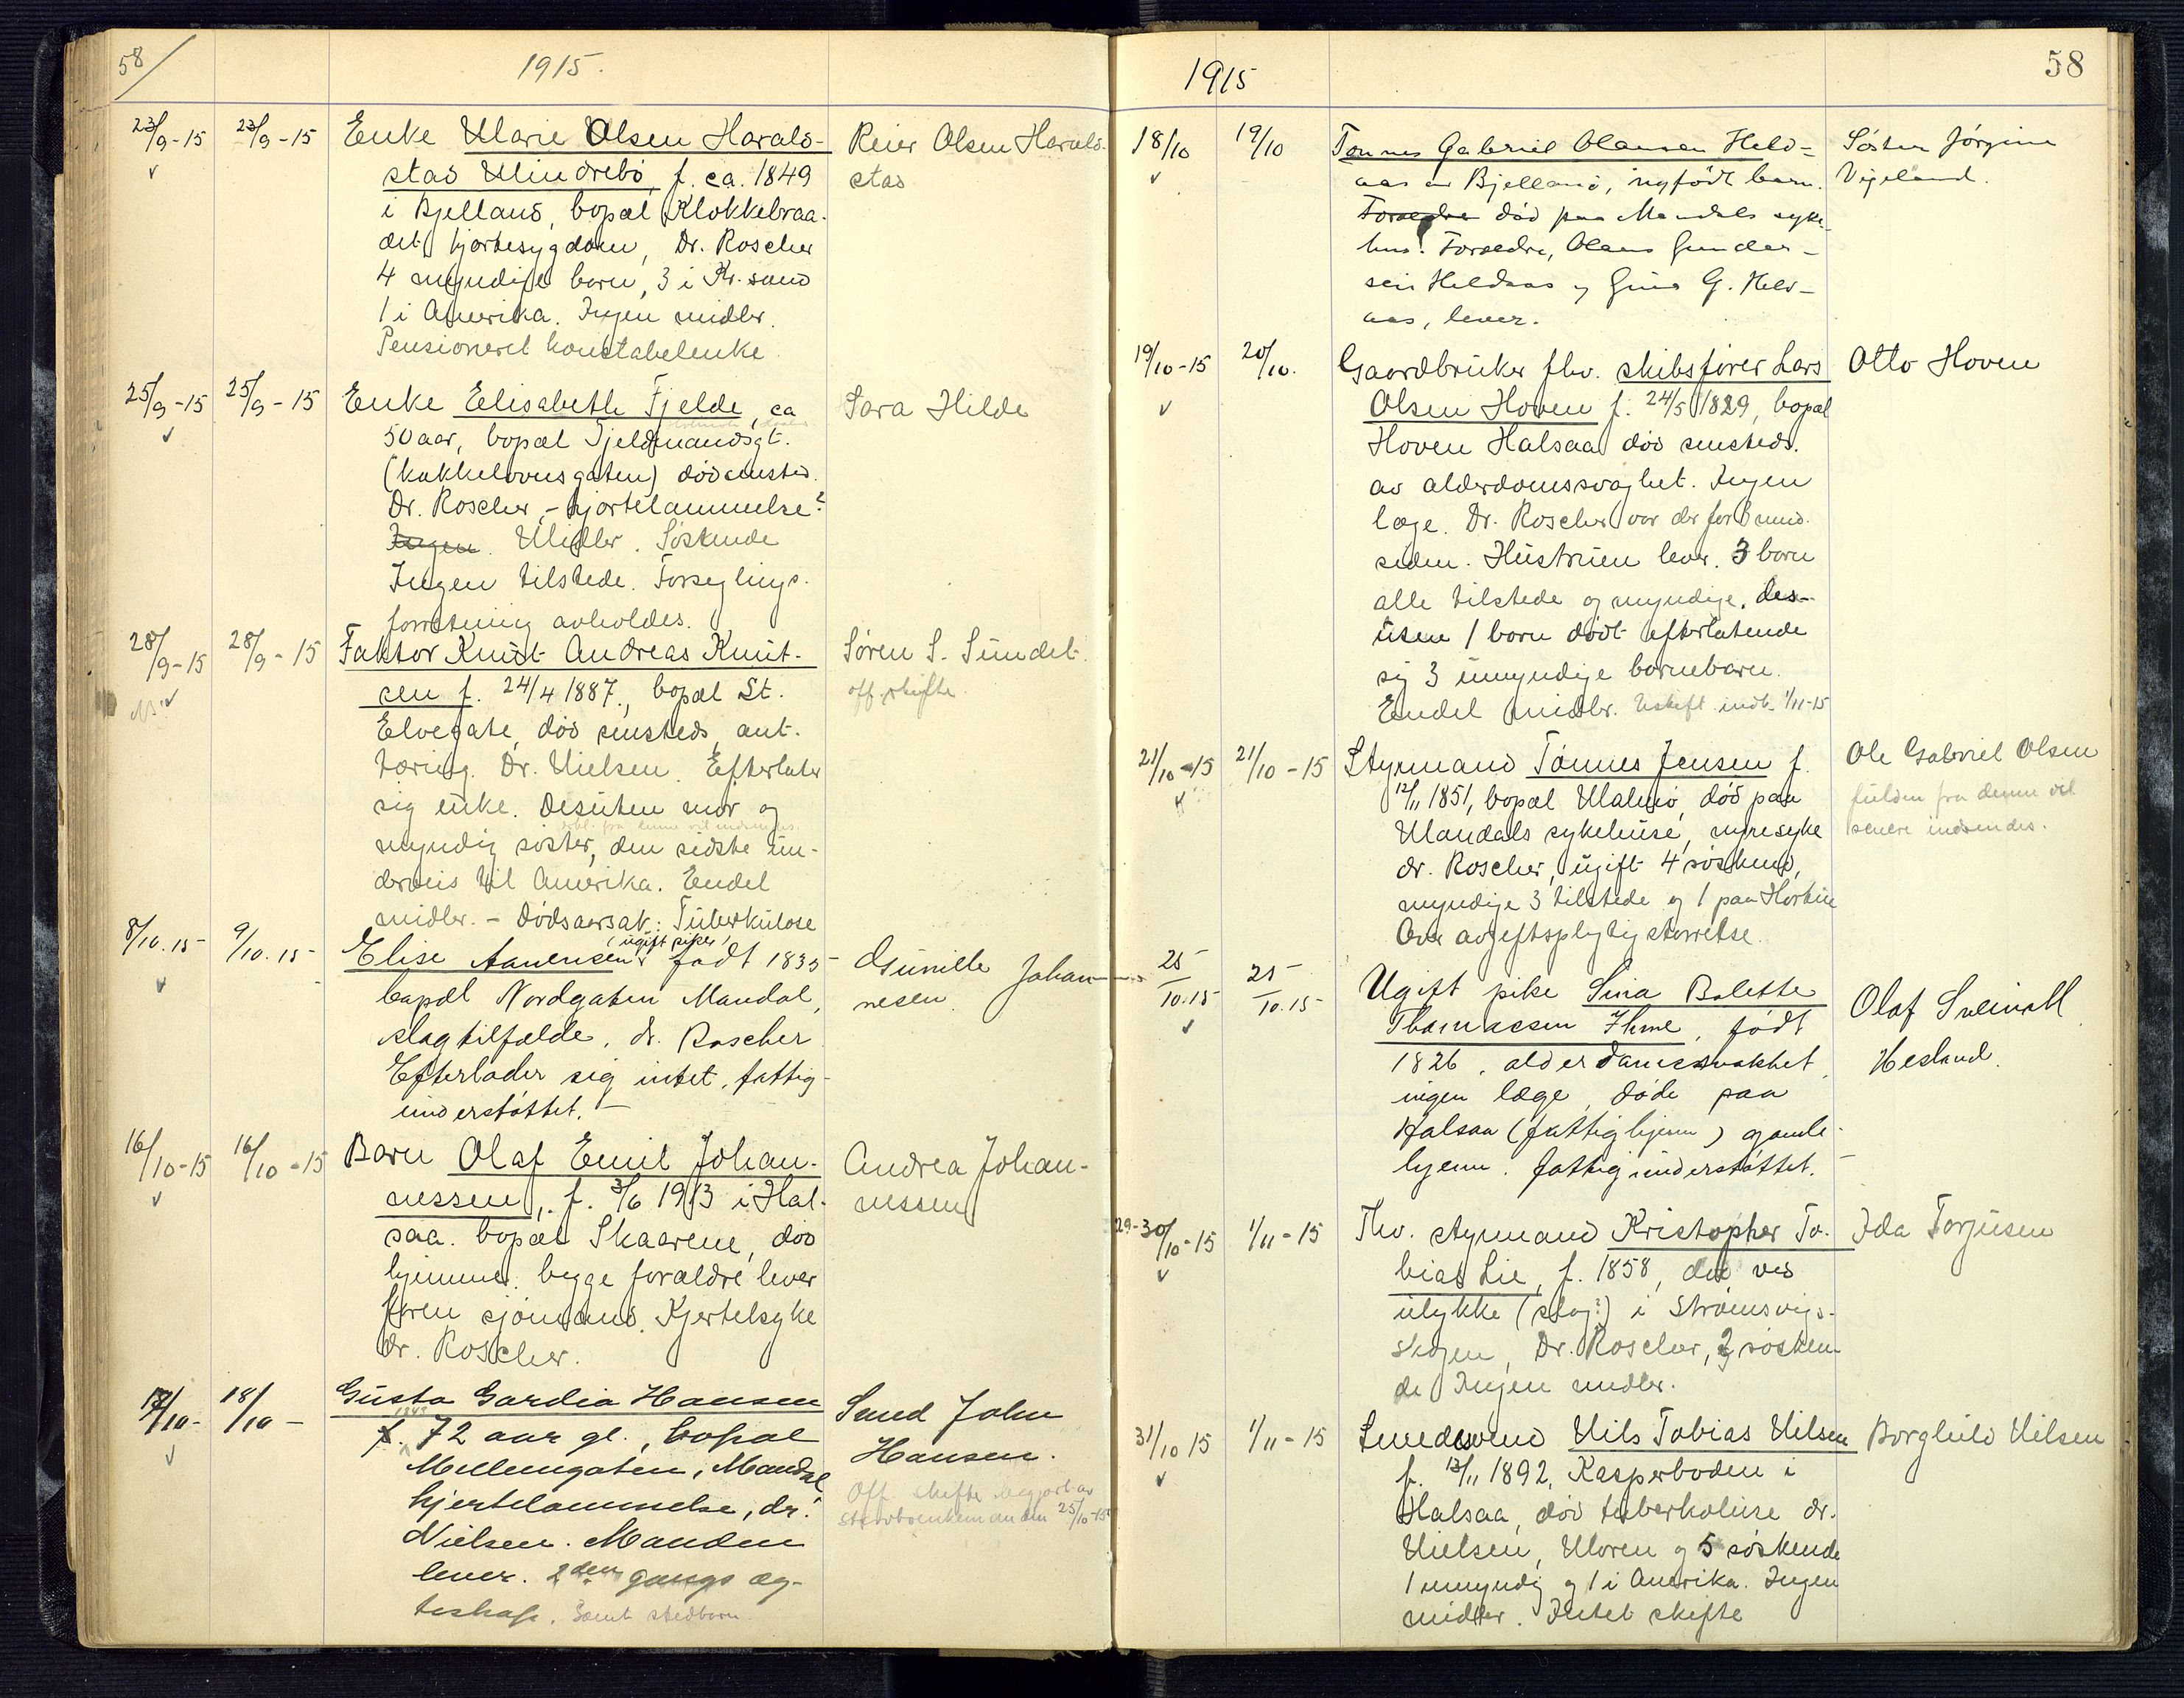 58
1915.
23/9-15 23/9-15 Enke Marie Olsen Harald-
stad Mindrebö, f. ca. 1849
i Bjelland, bopæl Klokkebraa-
det, hjertesygdom, Dr. Roscher
4 myndige børn, 3 i Kr.sand
1 i Amerika. Ingen midler.
Pensioneret konstabelenke
Reier Olsen Harald-
stad
25/9-15 25/9-15 Enke Elisabeth Fjelde, ca
50 aar, bopæl Fjeldmandsgt.
(kakkelovnsgaten) død sinsted.
Dr. Roscher, - hjertelammelse?
Ingen. Midler. Søskende
Ingen tilstede. Forseglings-
forretning avholdes.
Sara Hilde
28/9-15 28/9-15 Faktor Knut Andreas Knut-
sen f. 24/4 1887, bopæl St.
Elvegate, død sinsteds, ant.
tæring. Dr. Nielsen. Efterlater
sig enke. Desuten mor og
myndig søster, den sidste un-
derveis til Amerika. Endel
midler. - Dødsaarsak: Tuberkulose
Søren S. Sundet.
off. skifte
8/10.15 9/10.15 Elise Aanensen (ugift pike) født 1835
bopæl Nordgaten Mandal,
slagtilfælde, dr. Roscher
Efterlader sig intet, fattig-
understøttet. -
Gunille Johan-
nesen
16/10-15 16/10-15 Barn Olaf Emil Johan-
nessen, f. 3/6 1913 i Hal-
saa. bopæl Skaarene, død
hjemme. begge forældre lever
faren sjømand. Kjertelsyke
dr. Roscher.
Andrea Johan-
nessen
18/10- 18/10- Gusta Gardia Hansen
f. 72 aar gl., bopæl
Mellemgaten, Mandal
hjertelammelse, dr.
Nielsen. Manden
lever. 2den gangs æg-
teskap. Samt stedbarn
Smed John
Hansen.
Off. skifte begjært av
den 25/10-15
1915
58
18/10 19/10 Tønnes Gabriel Olausen Held-
aas av Bjelland, nyfødt barn.
Forældre død paa Mandals syke-
hus. Forældre, Olaus Gunder-
sen Heldaas og Gina G. Held-
aas, lever.
Søster Jørgine
Vigeland.
19/10-15 20/10. Gaardbruker fhv. skibsfører Lars
Olsen Hoven f. 24/5 1829, bopæl
Hoven Halsaa død sinsteds.
av alderdomssvaghet. Ingen
læge. Dr. Roscher var der for 8 mnd.
siden. Hustruen lever. 3 børn
alle tilstede og myndige, des-
uten 1 barn dødt efterlatende
sig 3 umyndige børnebørn.
Endel midler. Uskift. indb. 1/11-15
Otto Hoven
21/10-15 21/10-15 Styrmand Tønnes Jensen f.
12/11 1851, bopæl Malmö, død paa
Mandals sykehuse, nyresyke
dr. Roscher, ugift 4 søskend,
myndige 3 tilstede og 1 paa
Over avgiftspligtig størrelse.
Ole Gabriel Olsen
fra denne vil
senere indsendes.
25/10.15 25/10.15 Ugift pike Sina Bolette
Thomassen Ihme, født
1826, alderdomssvakhet,
ingen læge, døde paa
Halsaa (fattighjem) gamle-
hjem. fattigunderstøttet. -
Olaf Sveinall
Hesland.
29-30/10-15 1/11-15 Fhv. styrmand Kristopher To-
bias Lie, f. 1858, død ved
ulykke (slag?) i Strømsvigs-
skogen, Dr. Roscher, 2 søsken-
de Ingen midler.
Ida Torjusen
31/10 15 1/11-15 Smedsvend Nils Tobias Nilsen
f. 13/11 1892, Kasperboden i
Halsaa, død tuberkuluse dr.
Nielsen, Moren og 5 søskende
1 umyndig og 1 i Amerika. Ingen
midler. Intet skifte
Borghild Nilsen